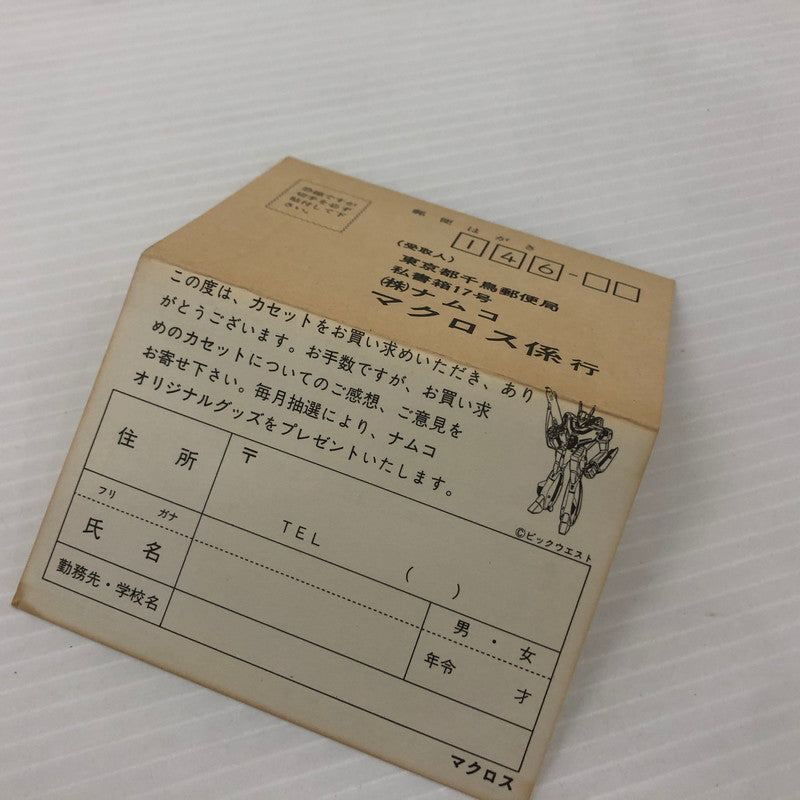 恐縮ですが
切手を必ず
貼付して下
さい。
郵便はがき
146-
(受取人)
東京都千鳥郵便局
私書箱17号
(株)ナムコ
マクロス係 行
この度は、カセットをお買い求めいただき、あり
がとうございます。お手数ですが、お買い求
めのカセットについてのご感想、ご意見を
お寄せ下さい。毎月抽選により、ナムコ
オリジナルグッズをプレゼントいたします。
©ビックウエスト
住所 〒
TEL ( )
フリ ガナ
氏名
男・女
年令 才
勤務先・学校名
マクロス